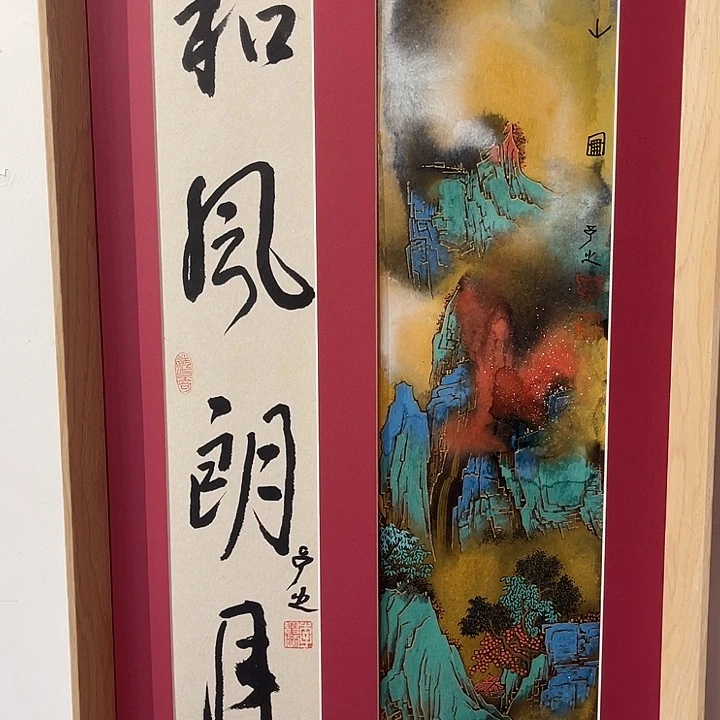 和風朗月
予之
圖
予之